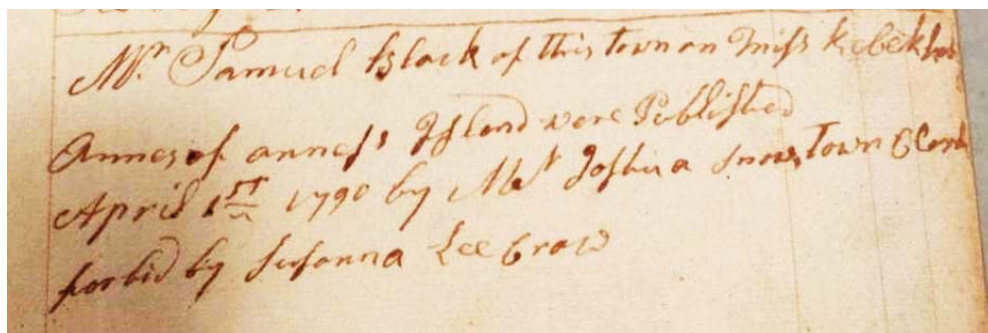 Mr. Samuel Black of this town an Miss Rebekkah
Annes of anness Island were Published
April 1st 1790 by Mr Joshua Snow, Town Clerk
forbid by Susanna Lee Crow